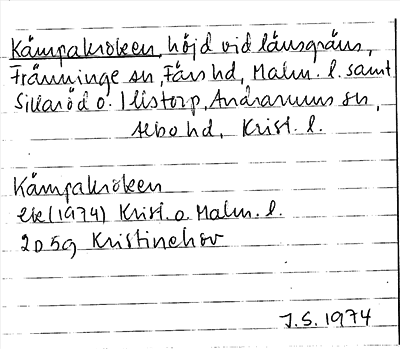 Kämpakröken, höjd vid länsgräns,
Tränninge sn, Färs hd, Malm. l. samt
Sillaröd o. Illstorp, Andrarums sn,
Albo hd, Krist. l.
Kämpakröken
ek (1974) Krist. o. Malm. l.
2D 5g Kristinehov
J.S. 1974